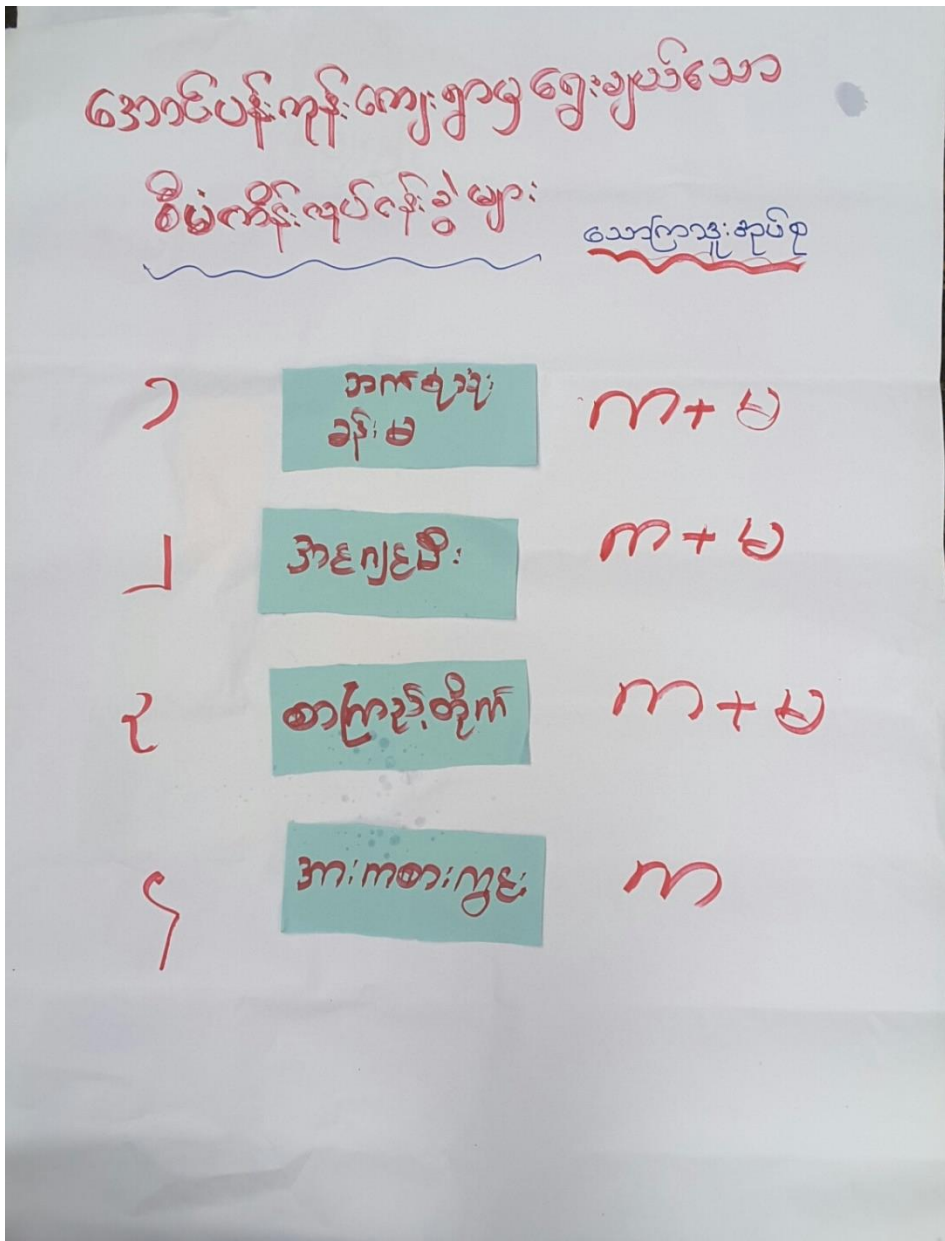 အောင်ပန်းကုန်းကျေးရွာမှ ရွေးချယ်သော
စီမံကိန်းလုပ်ငန်းခွဲများ
သောကြာဒူးအုပ်စု
၁ ဘက်စုံသုံး ခန်းမ က + မ
၂ အင်ဂျင်မီး က + မ
၃ စာကြည့်တိုက် က + မ
၄ အားကစားကွင်း က